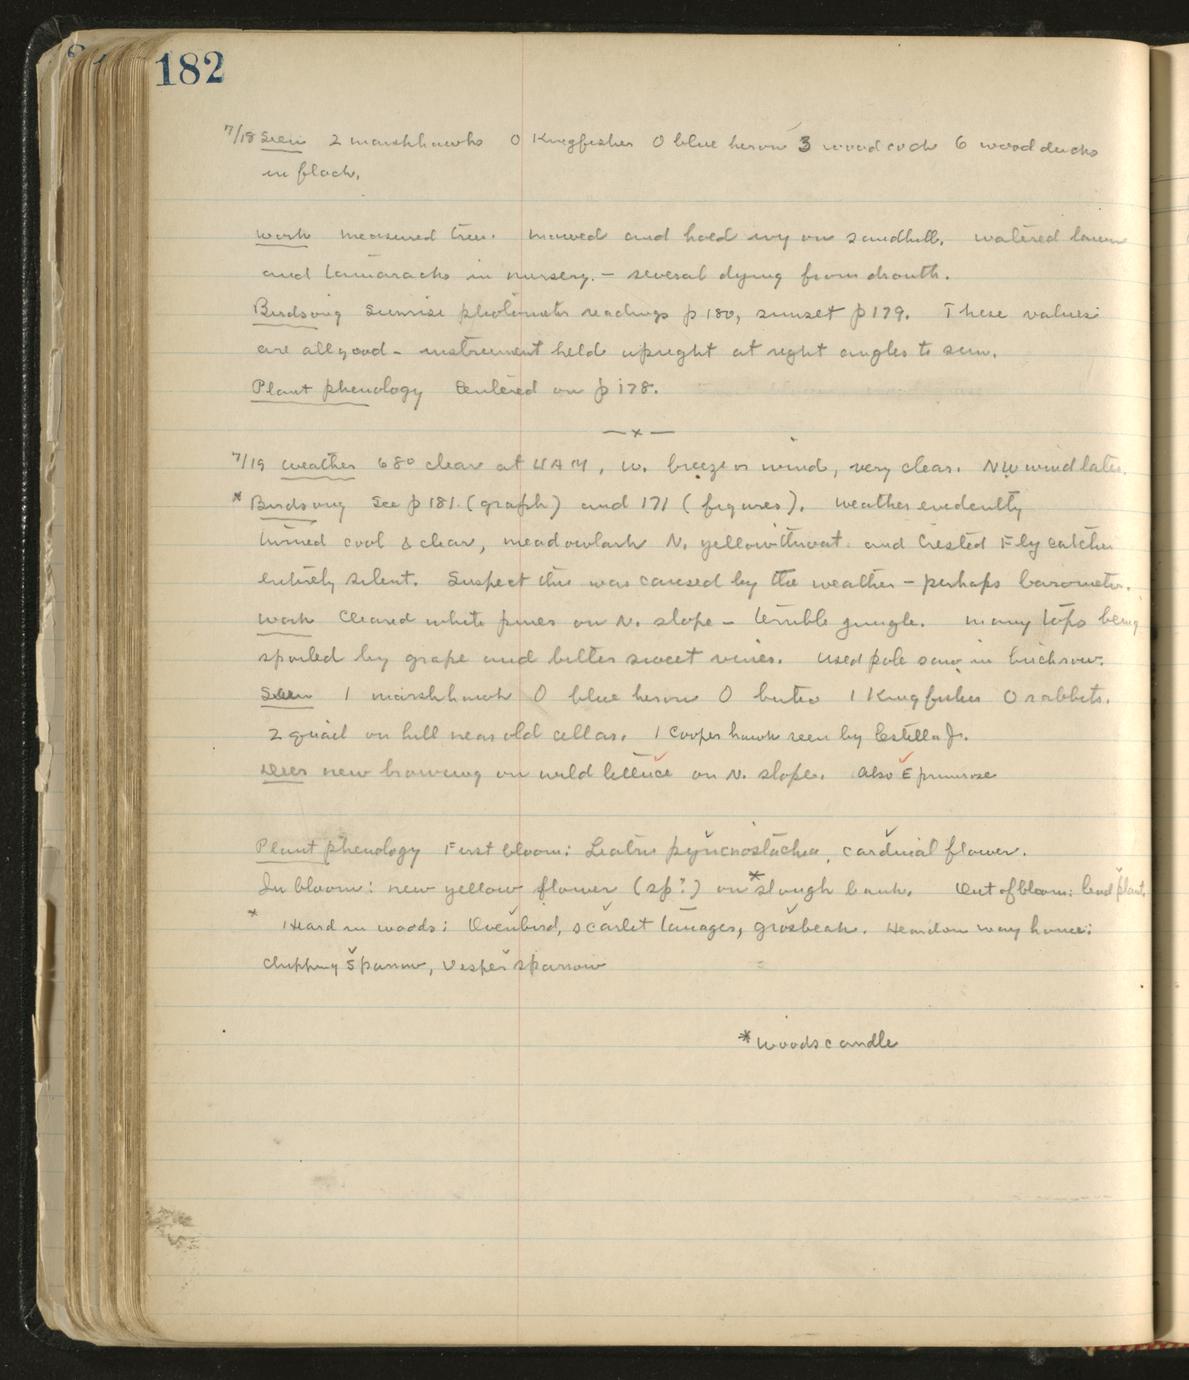 182
7/18 Seen 2 marshhawks 0 Kingfisher 0 blue heron 3 woodcock 6 woodducks
in flock.
Work measured trees. mowed and hoed ivy on sandhill, watered lawn
and tamaracks in nursery. - several dying from drouth.
Birdsong Sunrise photometer readings p 180, sunset p 179. These values
are all good - instrument held upright at right angles to sun.
Plant phenology Entered on p 178.
—x—
7/19 Weather 68° clear at 4 AM, W. breeze or wind, very clear. NW wind later.
* Birdsong See p 181 (graph) and 171 (figures). Weather evidently
turned cool & clear, meadowlark N. yellowthroat and Crested Flycatcher
entirely silent. Suspect this was caused by the weather - perhaps barometer.
Work Cleared white pines on N. slope - terrible jungle. many tops being
spoiled by grape and bittersweet vines. Used pole saw in birchrow.
Seen 1 marshhawk 0 blue heron 0 buteo 1 Kingfisher 0 rabbits.
2 quail on hill near old cellar. 1 Cooper hawk seen by Estella Jr.
Deer new browsing on wild lettuce on N. slope. Also E primrose
Plant phenology First bloom: Liatris pycnostachea, cardinal flower.
In bloom: new yellow flower (sp?) on *slough bank. Out of bloom: lead plant
* Heard in woods: Ovenbird, scarlet tanager, grosbeak. Heard on way home:
chipping sparrow, Vesper sparrow
* Woodscandle